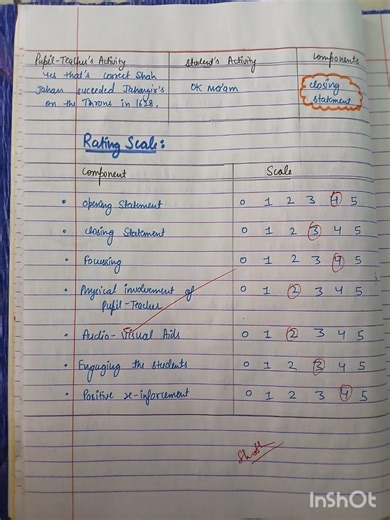 Pupil-Teacher's Activity Student's Activity Components
Yes that's correct Shah
Jahan succeeded Jahangir's
on the Throne in 1628.
OK Ma'am
closing
statement
Rating Scale:
Component Scale
• Opening Statement 0 1 2 3 4 5
• Closing Statement 0 1 2 3 4 5
• Focussing 0 1 2 3 4 5
• Physical involvement of 0 1 2 3 4 5
Pupil-Teacher
• Audio-Visual Aids 0 1 2 3 4 5
• Engaging the students 0 1 2 3 4 5
• Positive re-inforcement 0 1 2 3 4 5
InShOt